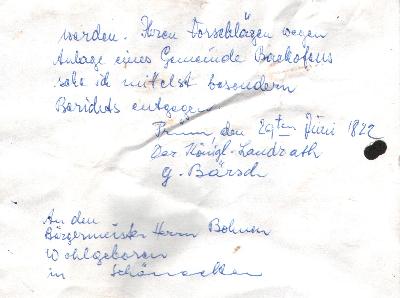 werden. Ihren Vorschlägen wegen
Anlage eines Gemeinde Backofens
sehe ich mittelst besondern
Berichts entgegen.
Prüm den 29ten Juni 1822
Der Königl. Landrath
G. Bärsch
An den
Bürgermeister Herrn Bohnen
Wohlgeboren
in Schönecken